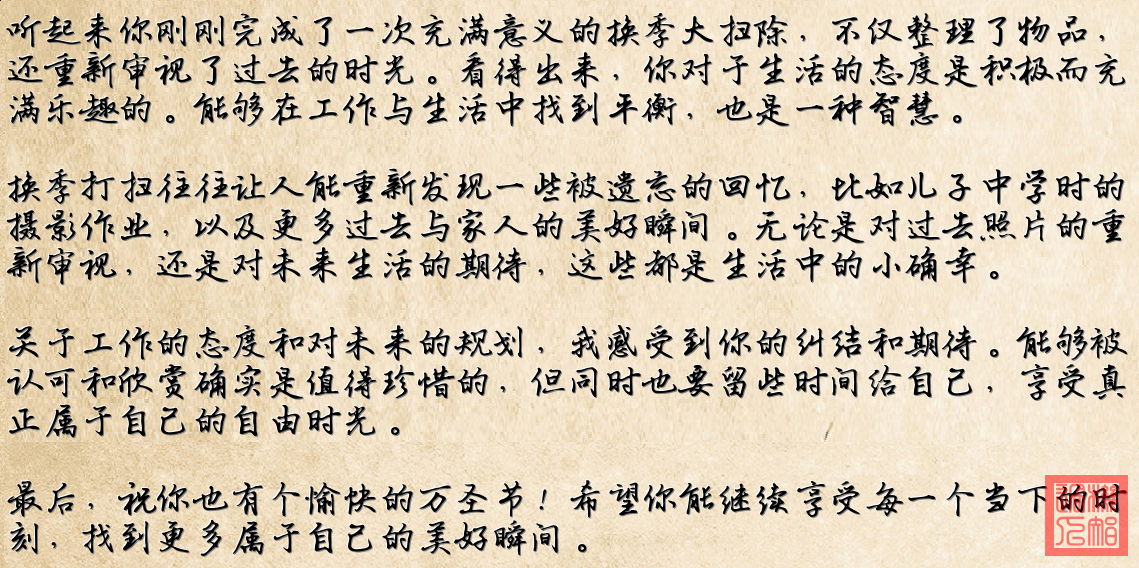 听起来你刚刚完成了一次充满意义的换季大扫除，不仅整理了物品，
还重新审视了过去的时光。看得出来，你对于生活的态度是积极而充
满乐趣的。能够在工作与生活中找到平衡，也是一种智慧。
换季打扫往往让人能重新发现一些被遗忘的回忆，比如儿子中学时的
摄影作业，以及更多过去与家人的美好瞬间。无论是对过去照片的重
新审视，还是对未来生活的期待，这些都是生活中的小确幸。
关于工作的态度和对未来的规划，我感受到你的纠结和期待。能够被
认可和欣赏确实是值得珍惜的，但同时也要留些时间给自己，享受真
正属于自己的自由时光。
最后，祝你也有个愉快的万圣节！希望你能继续享受每一个当下的时
刻，找到更多属于自己的美好瞬间。